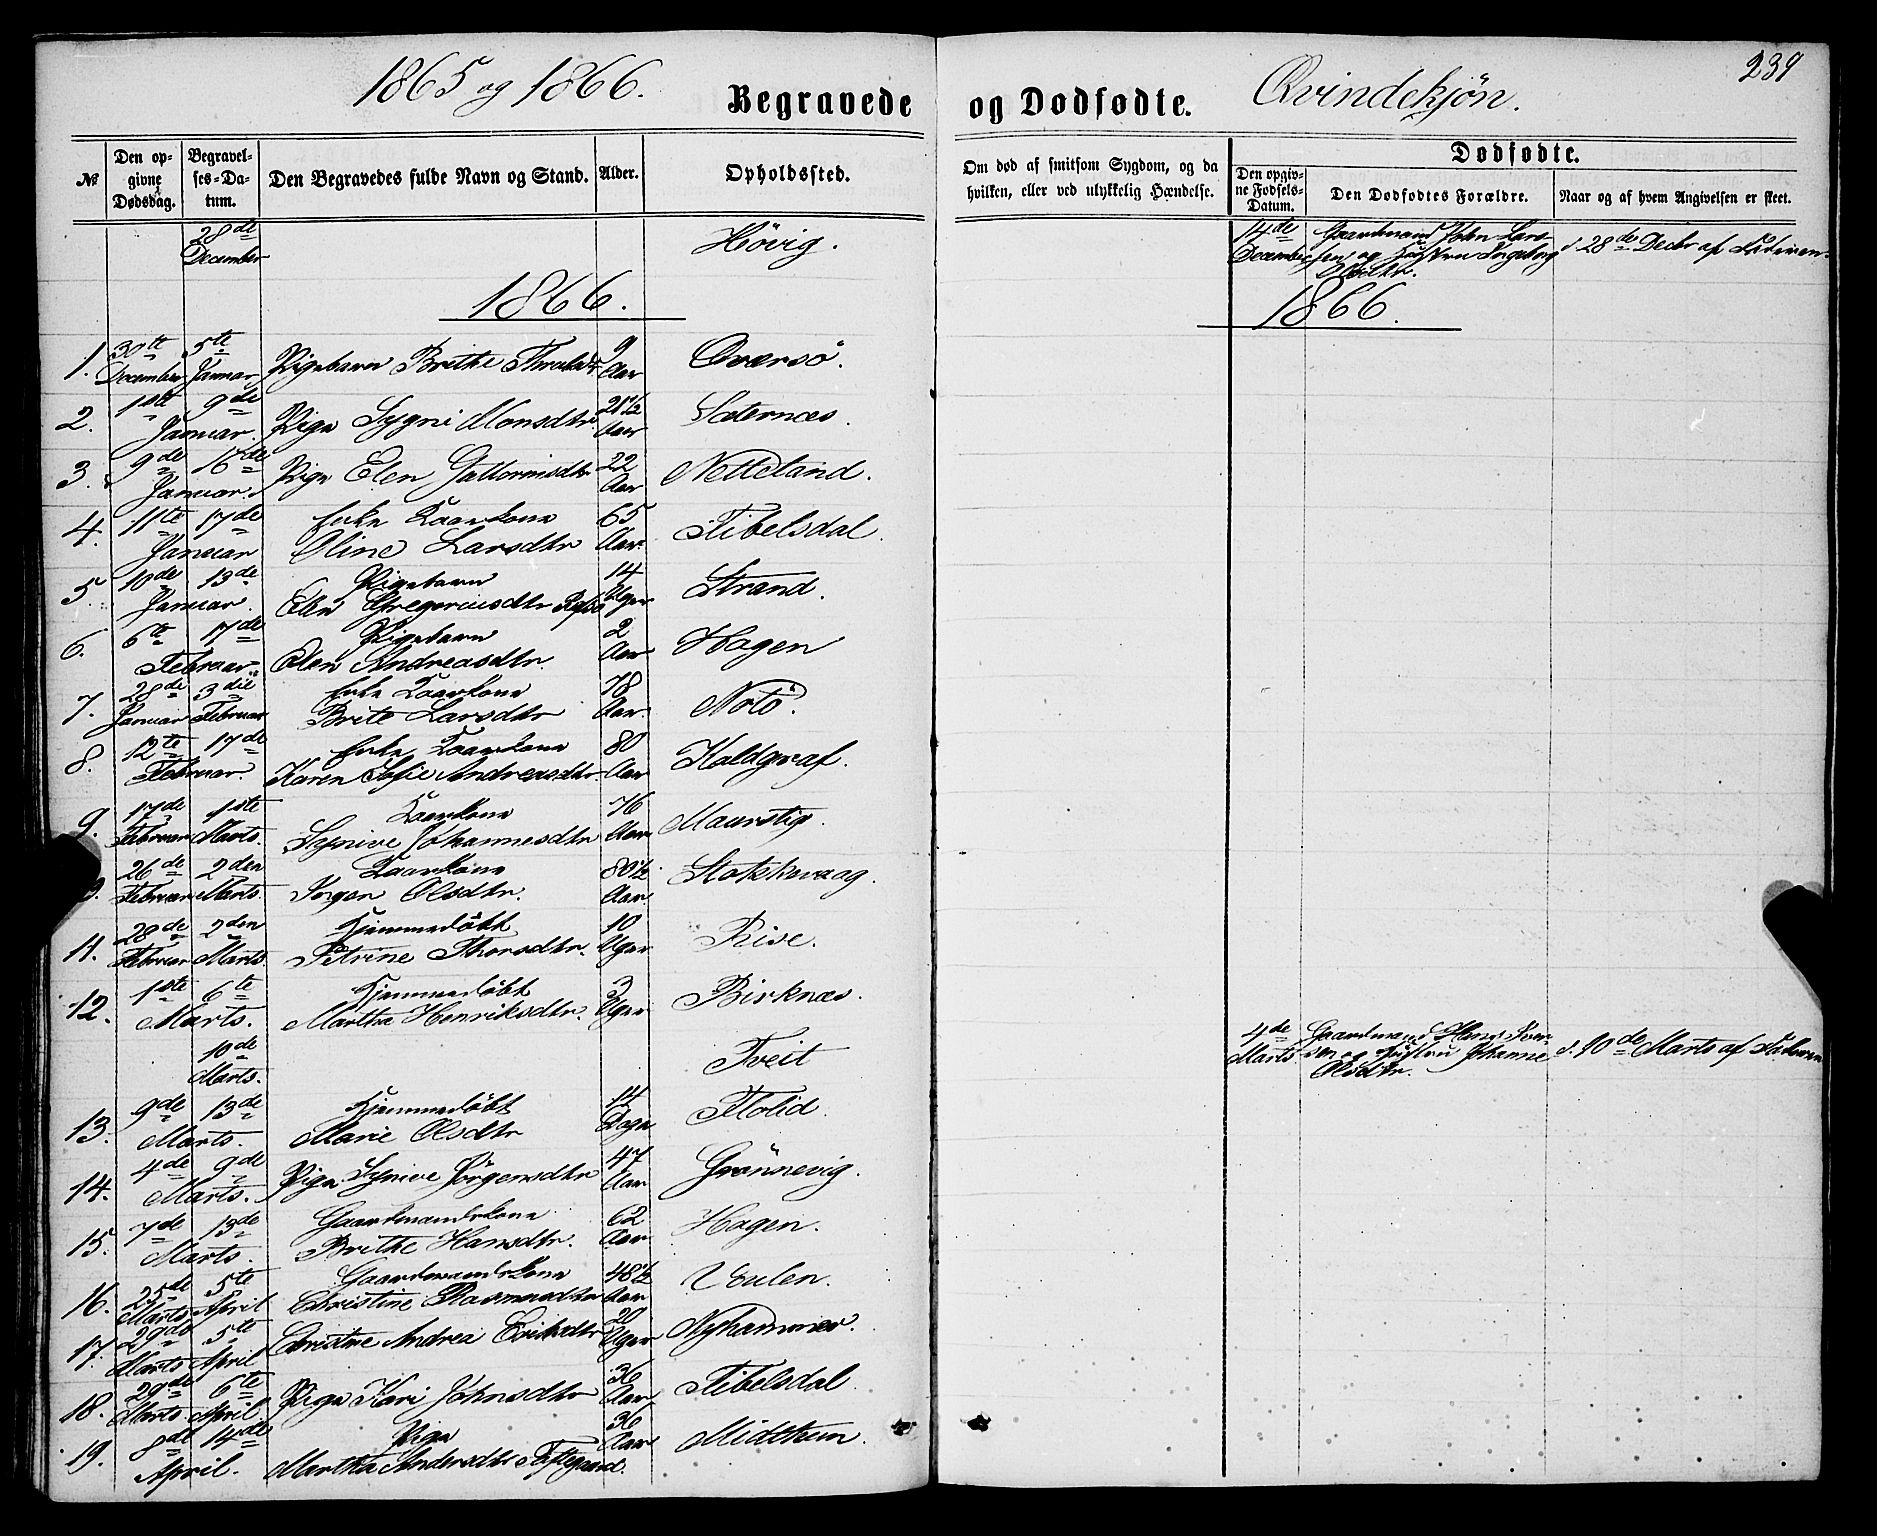 1865 og 1866.
Begravede og Dødfødte.
Qvindekjøn.
239
№
Den opgivne Dødsdag.
Begravelses-Datum.
Den Begravedes fulde Navn og Stand.
Alder.
Opholdssted.
Om død af smitsom Sygdom, og da hvilken, eller ved ulykkelig Hændelse.
Dødfødte.
Den opgivne Fødsels-Datum.
Den Dødfødtes Forældre.
Naar og af hvem Angivelsen er skeet.
28de December Høvig. 14de December Gaardmand John Larssen og Hustru Ingeborg d. 28de Decbr af Faderen.
1866. 1866.
1. 30te December 5te Januar Pigebarn Brithe 9 Aar
2. 1ste 9de Januar. Pige Sygni Monsdtr. 21½ Aar Sæternæs.
3. 9de 16de Januar. Pige Elen Guttormsdtr 22 Aar Netteland.
4. 11te 17de Januar Enke Kaarkone Oline Larsdtr 65 Aar. Tibelsdal.
5. 10de 13de Januar. Pigebarn Elen Gregoriusdtr 14 Uger Strand.
6. 6te 17de Februar Pigebarn Elen Andreasdtr. 2 Aar Hagen
7. 28de Januar 3die Februar Enke Kaarkone Brite Larsdtr 78 Aar. Notø.
8. 12te 17de Februar. Enke Kaarkone Karen Sofie Andreasdtr 80 Aar Kaldgraf.
9. 17de Februar 1ste Marts. Kaarkone Synive Johannesdtr 76 Aar Maurstig.
26de Februar 2den Marts. Kaarkone Olsdtr. 80½ Aar. Stokkevaag.
11. 28de Februar 2den Marts. Hjemmedøbt Petrine Thorsdtr. 10 Uger Rise.
12. 1ste 6te Marts. Hjemmedøbt Martha Henriksdtr. 3 Uger Birknæs.
10de Marts. Tveit 4de Marts Gaardmand Hans Iversen og Hustru Johanne Olsdtr. d. 10de Marts af Faderen
13. 9de 13de Marts. Hjemmedøbt Marie Olsdtr 14 Dage Flolid.
14. 4de 9de Marts. Pige Synive Jørgensdtr 47 Aar Grønnevig.
15. 7de 13de Marts. Gaardmandskone Brithe Hansdtr. 62 Aar Hagen.
16. 25de Marts 5te April Gaardmandskone Christine Rasmusdtr 48½ Aar
17. 29de Marts 5te April Christine Andrea Eriksdtr 20 Uger Nyhammer.
18. 29de Marts 6te April Pige Kari Johnsdtr 36 Aar Tibelsdal
19. 8de 14de April. Pige Martha Andersdtr Toftegaard. 36 Aar Midthun.